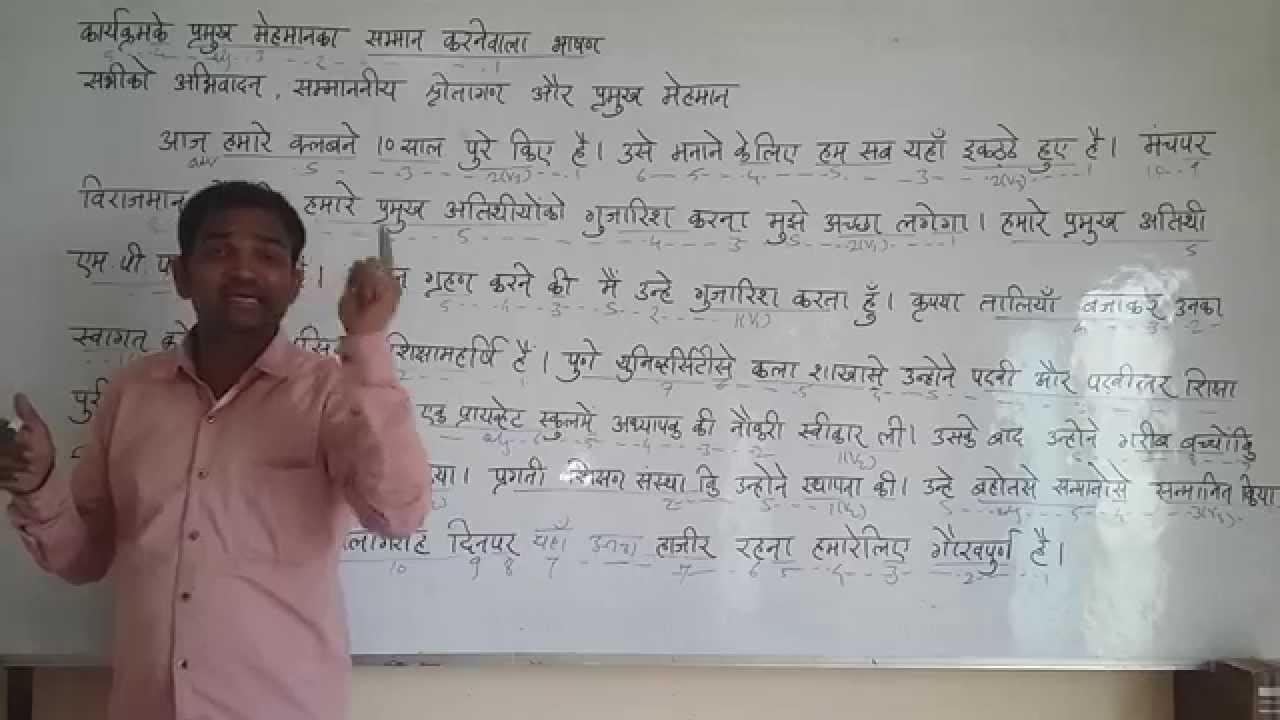 कार्यक्रमके प्रमुख मेहमानका सम्मान करनेवाला भाषण
सभीको अभिवादन, सम्माननीय श्रोतागण और प्रमुख मेहमान
आज हमारे क्लबने 10 साल पुरे किए है। उसे मनाने केलिए हम सब यहाँ इकठठे हुए है। मंचपर
विराजमान हमारे प्रमुख अतिथीयोंको गुजारिश करना मुझे अच्छा लगेगा। हमारे प्रमुख अतिथी
एम.पी. ग्रहण करने की मैं उन्हे गुजारिश करता हुँ। कृपया तालियाँ बजाकर उनका
स्वागत शिक्षामहर्षि है। पुणे युनिव्हर्सिटीसे कला शाखासे उन्होने पदवी और पदवीत्तर शिक्षा
एक प्रायव्हेट स्कुलमें अध्यापक की नौकरी स्वीकार ली। उसके बाद उन्होने गरीब बच्चोंकि
प्रगती शिक्षण संस्था कि उन्होने स्थापना की। उन्हे बहोतसे सन्मानोसे सन्मानित किया
दिनपर यहाँ उनका हाजीर रहना हमारेलिए गौरवपुर्ण है।